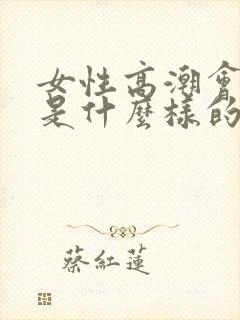 女性高潮會
是什麼樣的
蔡紅蓮